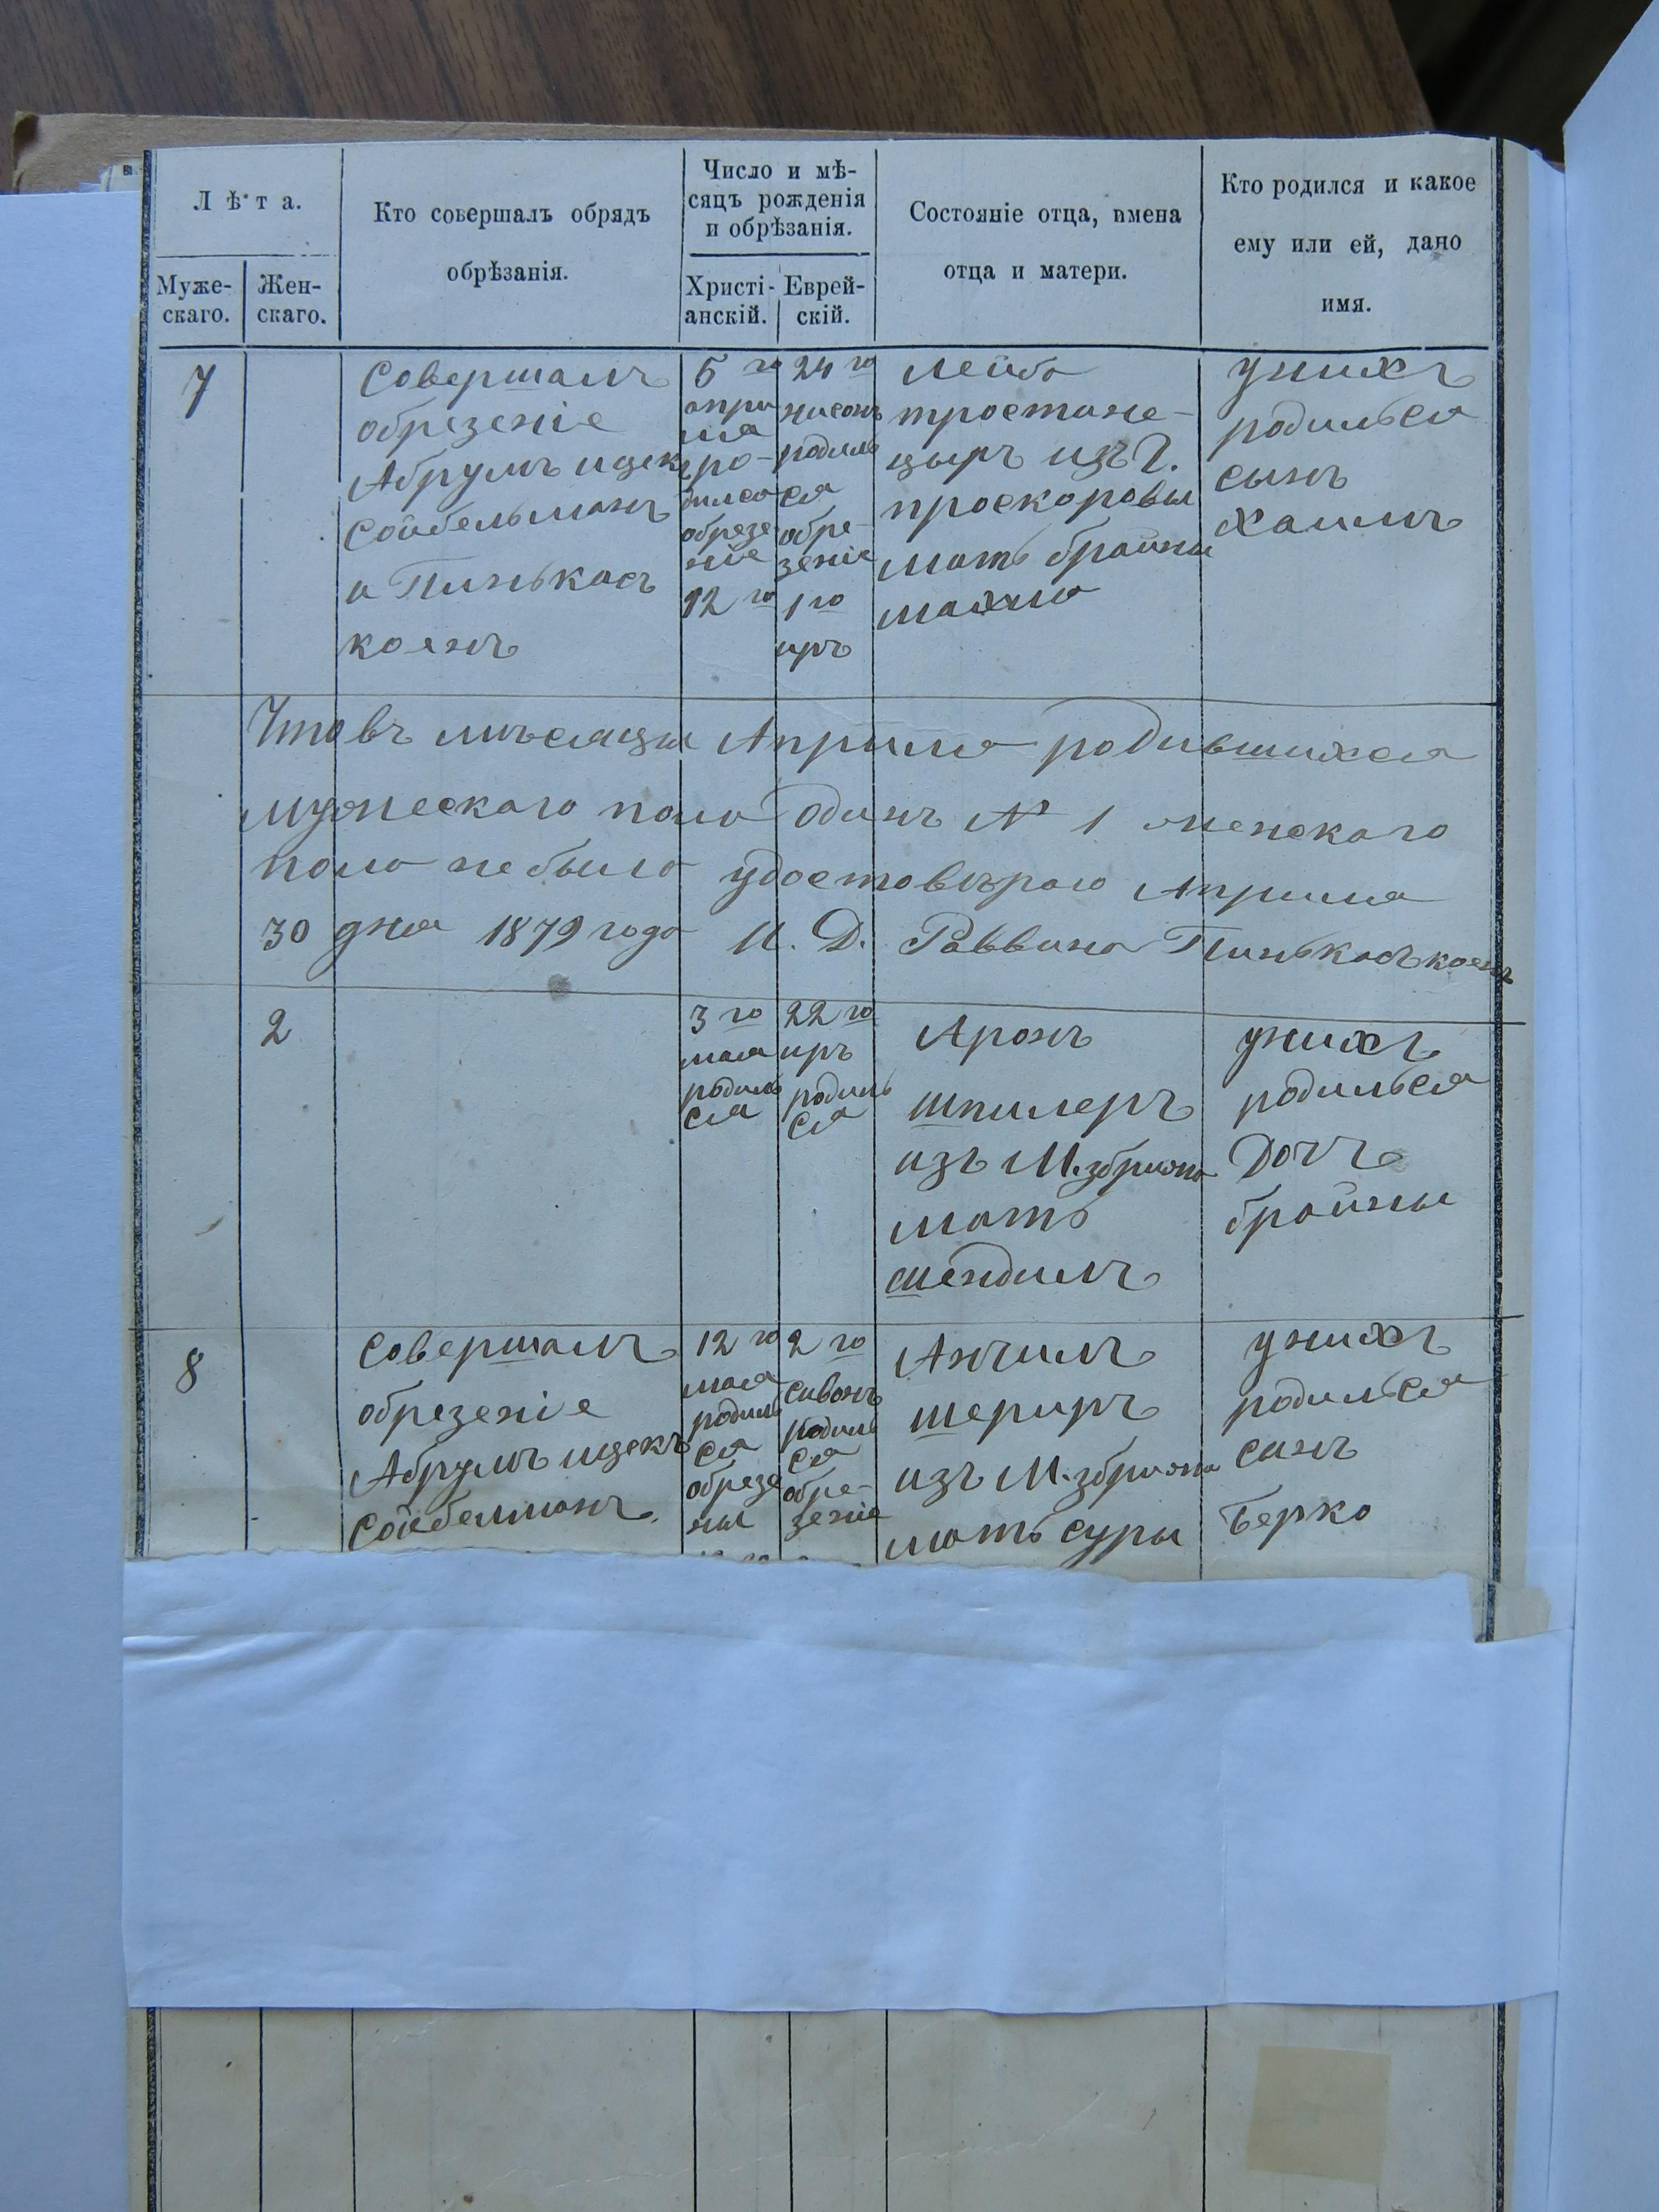 Лѣта.
Муже-
скаго.
Жен-
скаго.
Кто совершалъ обрядъ
обрѣзанія.
Число и мѣ-
сяцъ рожденія
и обрѣзанія.
Христі-
анскій.
Еврей-
скій.
Состояніе отца, имена
отца и матери.
Кто родился и какое
ему или ей, дано
имя.
7
Совершалъ
обрезеніе
Абрумъ ицекъ
Сойбельманъ
и Пинькасъ
коенъ
5 го
апри
ля
ро-
дилса
обрезе
ніе
12 го
24 го
нисонъ
родиль
ся
обре-
зеніе
1 го
иръ
Лейба
тростане-
цыръ изъ Г.
проскоровы
мать брайны
махля
унихъ
родилься
сынъ
Хаимъ
Что въ мѣсяцы Априля родившихся
мужескаго пола Одинъ № 1 женскаго
пола не было удостовѣраю Априля
30 дня 1879 года И. Д. Раввина Пинькасъ коенъ
2
3 го
мая
родиль
ся
22 го
иръ
родиль
ся
Аронъ
шпилеръ
изъ М. збрижа
мать
шендиль
унихъ
родилься
Дочъ
брайны
8
Совершалъ
обрезеніе
Абрумъ ицекъ
Сойбелманъ
12 го
мая
родиль
ся
обрезе
ны
2 го
сивонъ
родиль
ся
обре-
зеніе
Анчиль
шериръ
изъ М. збрижа
мать суры
унихъ
родилься
синъ
Берко